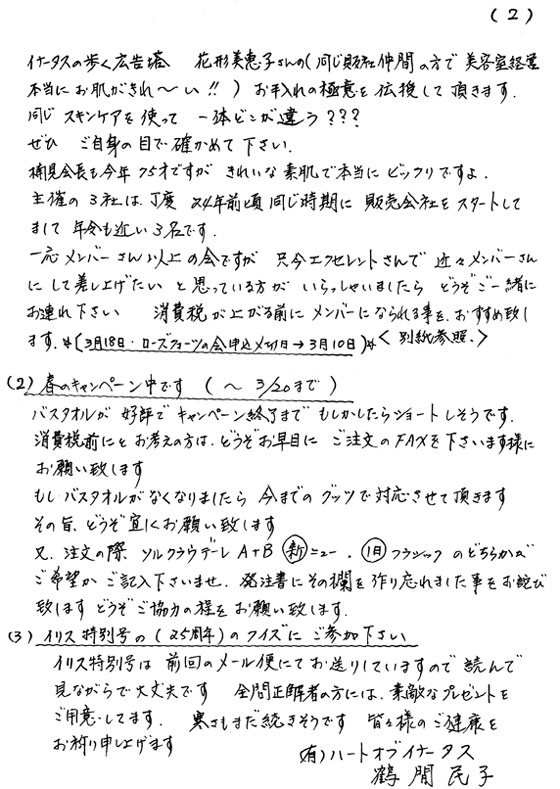 (2)
イナータスの歩く広告塔 花形美恵子さんの(同じ販社仲間の方で美容室経営
本当にお肌がきれ〜い!!) お手入れの極意を伝授して頂きます.
同じスキンケアを使って 一体どこが違う???
ぜひ ご自身の目で確かめて下さい.
会長も今年75才ですが きれいな素肌で本当にビックリですよ.
主催の3社は、丁度 24年前頃同じ時期に 販売会社をスタートして
まして 年令も近い3名です.
一応メンバーさん以上の会ですが 只今エクセレントさんで 近々メンバーさん
にして差し上げたい と思っている方が いらっしゃいましたら どうぞご一緒に
お連れ下さい 消費税が上がる前に メンバーになられる事を、おすすめ致し
ます. *[3月18日・ローズクィーンの会申込〆切日→3月10日]* <別紙参照.>
(2) 春のキャンペーン中です (〜 3/20まで)
バスタオルが 好評で キャンペーン終了まで もしかしたらショートしそうです.
消費税前にとお考えの方は、どうぞお早目に ご注文のFAXを下さいます様に
お願い致します
もし バスタオルがなくなりましたら 今までの グッツで対応させて頂きます
その旨、どうぞ宜しくお願い致します
又、注文の際 ソルクラウデーレ A+B 新ニュー・旧クラシック のどちらかが
ご希望か ご記入下さいませ. 発注書にその欄を作り忘れました事をお詫び
致します どうぞご協力の程を お願い致します.
(3) イリス特別号の(25周年)のクイズに ご参加下さい
イリス特別号は 前回のメール便にてお送りしていますので 読んで
見ながらで大丈夫です 全問正解者の方には、素敵なプレゼントを
ご用意してます. 寒さもまだ続きそうです 皆々様のご健康を
お祈り申し上げます
(有)ハートオブイナータス
鶴間民子